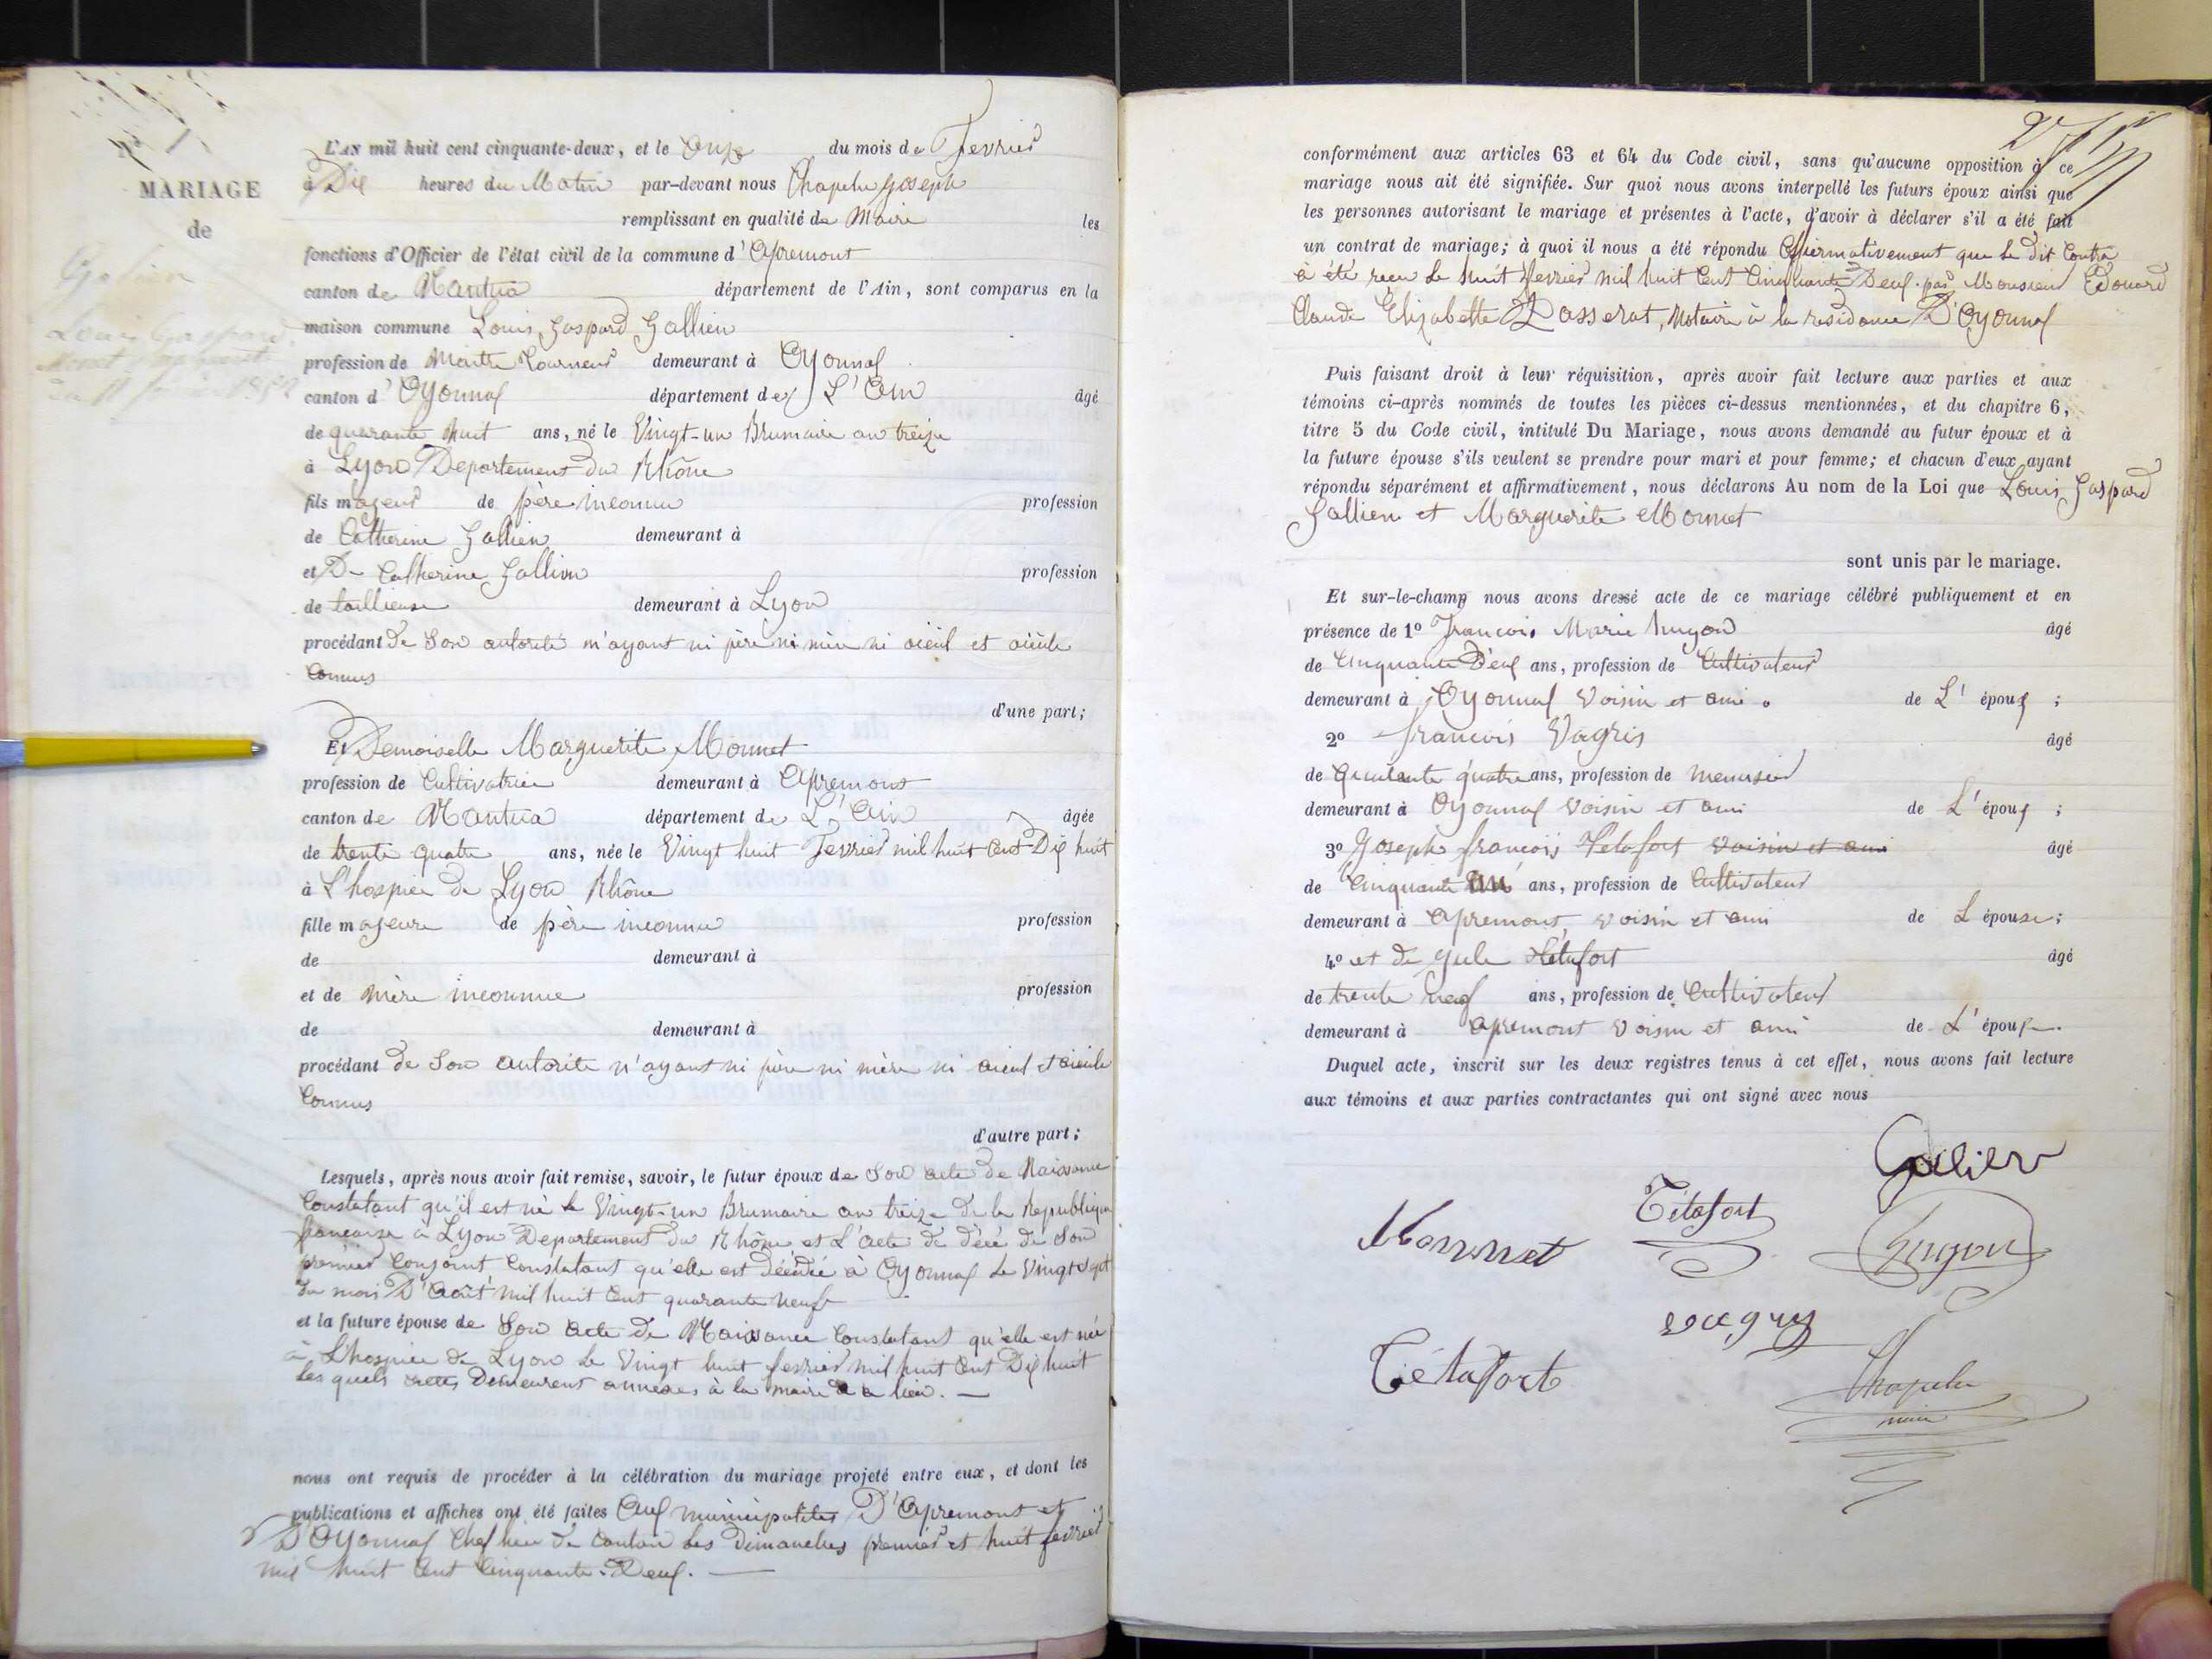 N° 1
MARIAGE
de
Galien
Louis Gaspard
Monet Marguerite
L'AN mil huit cent cinquante-deux, et le Onze du mois de Fevrier
à Dix heures du Matin par-devant nous Chapelu Joseph
remplissant en qualité de Maire les
fonctions d'Officier de l'état civil de la commune d'Apremont
canton de Nantua département de l'Ain, sont comparus en la
maison commune Louis Gaspard Gallien
profession de Maitre Tourneur demeurant à Oyonnax
canton d'Oyonnax département de L'Ain âgé
de quarante huit ans, né le Vingt-un Brumaire an treize
à Lyon Departement du Rhône
fils majeur de père inconnu profession
de Catherine Gallien demeurant à
et De Catherine Gallien profession
de taillieuse demeurant à Lyon
procédant de Son autorité n'ayant ni père ni mère ni aieul et aieule
Connus
d'une part;
Et Demoiselle Marguerite Monnet
profession de Cultivatrice demeurant à Apremont
canton de Nantua département de L'Ain âgée
de trente quatre ans, née le Vingt huit Fevrier mil huit Cent Dix huit
à L'hospice de Lyon Rhône
fille majeure de père inconnu profession
de demeurant à
et de Mère inconnue profession
de demeurant à
procédant de Son autorité n'ayant ni père ni mère ni aieul et aieule
Connus
d'autre part;
Lesquels, après nous avoir fait remise, savoir, le futur époux de Son acte de Naissance
Constatant qu'il est né le Vingt-un Brumaire an treize de la Republique
francaise à Lyon Departement du Rhône et L'acte de décé de Son
premier Conjoint Constatant qu'elle est décédée à Oyonnax le Vingt sept
du mois D'Août mil huit Cent quarante neuf
et la future épouse de Son acte de Naissance Constatant qu'elle est née
à L'hospice de Lyon le Vingt huit fevrier mil huit Cent Dix huit
Les quels actes Demeurent annexés à la mairie de a lieu. —
nous ont requis de procéder à la célébration du mariage projeté entre eux, et dont les
publications et affiches ont été faites Aux municipalités D'Apremont et
D'Oyonnax Chef lieu de Canton les Dimanches premier et huit fevrier
mil huit Cent Cinquante-Deux. —
conformément aux articles 63 et 64 du Code civil, sans qu'aucune opposition à ce
mariage nous ait été signifiée. Sur quoi nous avons interpellé les futurs époux ainsi que
les personnes autorisant le mariage et présentes à l'acte, d'avoir à déclarer s'il a été fait
un contrat de mariage; à quoi il nous a été répondu Affirmativement que le dit Contra
à été recu le huit fevrier mil huit Cent Cinquante Deux par Monsieur Edouard
Claude Elizabette Passerat, Notaire à la residence D'Oyonnax
Puis faisant droit à leur réquisition, après avoir fait lecture aux parties et aux
témoins ci-après nommés de toutes les pièces ci-dessus mentionnées, et du chapitre 6,
titre 5 du Code civil, intitulé Du Mariage, nous avons demandé au futur époux et à
la future épouse s'ils veulent se prendre pour mari et pour femme; et chacun d'eux ayant
répondu séparément et affirmativement, nous déclarons Au nom de la Loi que Louis Gaspard
Gallien et Marguerite Monnet
sont unis par le mariage.
Et sur-le-champ nous avons dressé acte de ce mariage célébré publiquement et en
présence de 1° Francois Marie hugon âgé
de Cinquante Deux ans, profession de Cultivateur
demeurant à Oyonnax voisin et ami de L'époux ;
2° francois Vagris âgé
de Quarante quatre ans, profession de menuisier
demeurant à Oyonnax voisin et ami de L'époux ;
3° Joseph francois Tétafort voisin et ami âgé
de Cinquante un ans, profession de Cultivateur
demeurant à apremont, voisin et ami de L épouse;
4° et de Jule Tétafort âgé
de trente neuf ans, profession de Cultivateur
demeurant à apremont voisin et ami de L'épouse.
Duquel acte, inscrit sur les deux registres tenus à cet effet, nous avons fait lecture
aux témoins et aux parties contractantes qui ont signé avec nous
Galien
Monnet Tétafort hugon
vagris
Tétafort Chapelu
maire